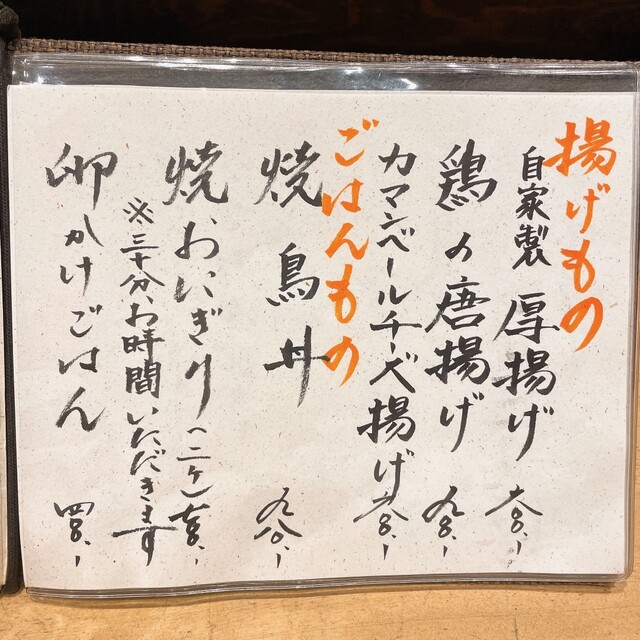 揚げもの
自家製 厚揚げ
鶏の唐揚げ
カマンベールチーズ揚げ
ごはんもの
焼鳥丼 九八〇.-
焼おにぎり(二ケ)
※三十分、お時間いただきます
卵かけごはん 四〇〇.-